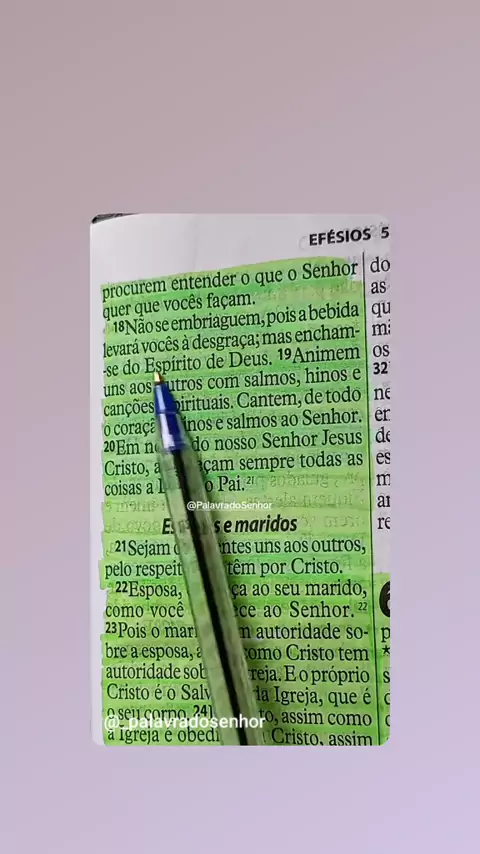 EFÉSIOS 5
procurem entender o que o Senhor
quer que vocês façam.
18Não se embriaguem, pois a bebida
levará vocês à desgraça; mas encham-
-se do Espírito de Deus. 19Animem
uns aos outros com salmos, hinos e
canções espirituais. Cantem, de todo
o coração hinos e salmos ao Senhor.
20Em do nosso Senhor Jesus
Cristo, sempre todas as
coisas a o Pai.21
@PalavradoSenhor
e maridos
21Sejam uns aos outros,
pelo respeito têm por Cristo.
22Esposa, ao seu marido,
como você ao Senhor.22
23Pois o marido autoridade so-
bre a esposa, como Cristo tem
autoridade sobre Igreja. E o próprio
Cristo é o Salvador da Igreja, que é
o seu corpo. 24 assim como
@_palavradosenhor
a Igreja é Cristo, assim
do
as
qu
os
32
ne
en
de
es
m
an
re
6
p
*
s